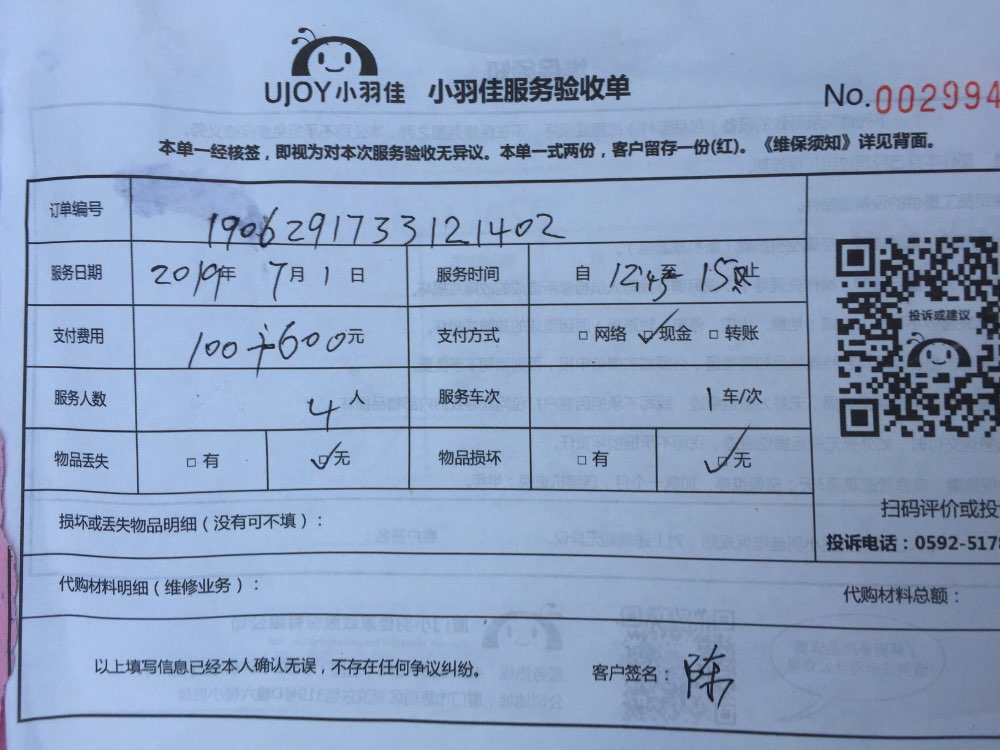 UJOY小羽佳 小羽佳服务验收单 No.002994
本单一经核签，即视为对本次服务验收无异议。本单一式两份，客户留存一份(红)。《维保须知》详见背面。
订单编号 190629173312​1402
服务日期 2019年 7月 1日 服务时间 自 12:45至 15 止
支付费用 100+600元 支付方式 □ 网络 ☑ 现金 □ 转账
投诉或建议
服务人数 4人 服务车次 1车/次
物品丢失 □ 有 ☑ 无 物品损坏 □ 有 ☑ 无
扫码评价或投
损坏或丢失物品明细（没有可不填）：
投诉电话：0592-517
代购材料明细（维修业务）： 代购材料总额：
以上填写信息已经本人确认无误，不存在任何争议纠纷。 客户签名：陈